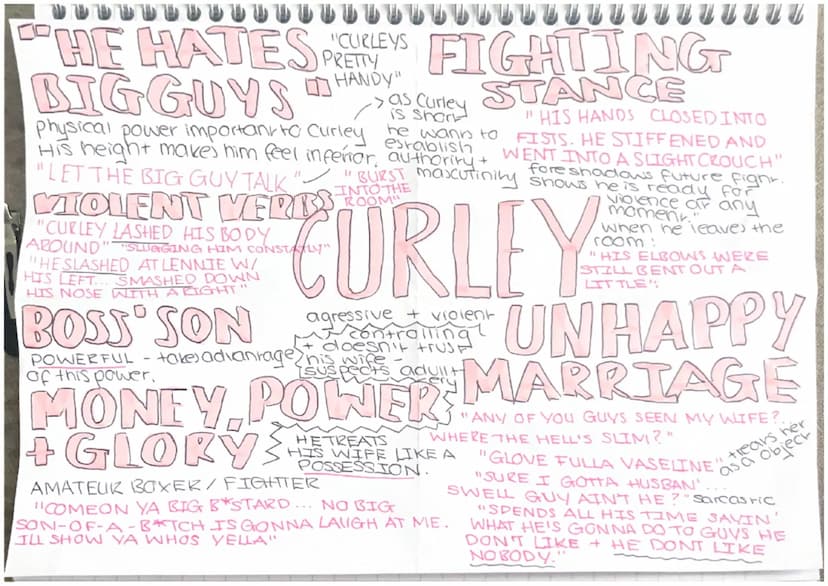 "HE HATES
BIG GUYS"
"CURLEYS
PRETTY
HANDY"
physical power important to Curley
His height makes him feel inferior.
as Curley
is short
he wants to
establish
authority +
masculinity
"LET THE BIG GUY TALK"
VIOLENT VERBS
"BURST
INTO THE
ROOM"
"CURLEY LASHED HIS BODY
AROUND" "SLUGGING HIM CONSTATLY"
"HE SLASHED AT LENNIE W/
HIS LEFT... SMASHED DOWN
HIS NOSE WITH A RIGHT"
BOSS' SON
POWERFUL - takes advantage
of this power.
MONEY, POWER
+ GLORY
AMATEUR BOXER / FIGHTER
"COMEON YA BIG B*STARD... NO BIG
SON-OF-A-B*TCH IS GONNA LAUGH AT ME.
ILL SHOW YA WHOS YELLA"
CURLEY
agressive + violent
controlling
+ doesn't trust
his wife -
suspects adult
ery
HE TREATS
HIS WIFE LIKE A
POSSESSION.
FIGHTING
STANCE
"HIS HANDS CLOSED INTO
FISTS. HE STIFFENED AND
WENT INTO A SLIGHT CROUCH"
foreshadows future fight.
shows he is ready for
violence at any
moment."
when he leaves the
room:
"HIS ELBOWS WERE
STILL BENT OUT A
LITTLE":
UNHAPPY
MARRIAGE
"ANY OF YOU GUYS SEEN MY WIFE?,
WHERE THE HELL'S SLIM?"
"GLOVE FULLA VASELINE"
+ treats her
as a object
"SURE I GOTTA HUSBAN'...
SWELL GUY AIN'T HE?" sarcastic
"SPENDS ALL HIS TIME SAYIN'
WHAT HE'S GONNA DO TO GUYS HE
DON'T LIKE + HE DONT LIKE
NOBODY."